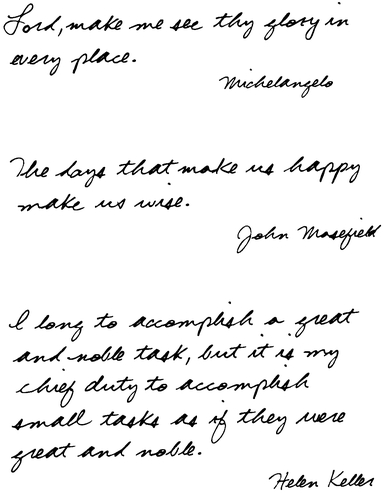 Lord, make me see thy glory in
every place.
Michelangelo
The days that make us happy
make us wise.
John Masefield
I long to accomplish a great
and noble task, but it is my
chief duty to accomplish
small tasks as if they were
great and noble.
Helen Keller